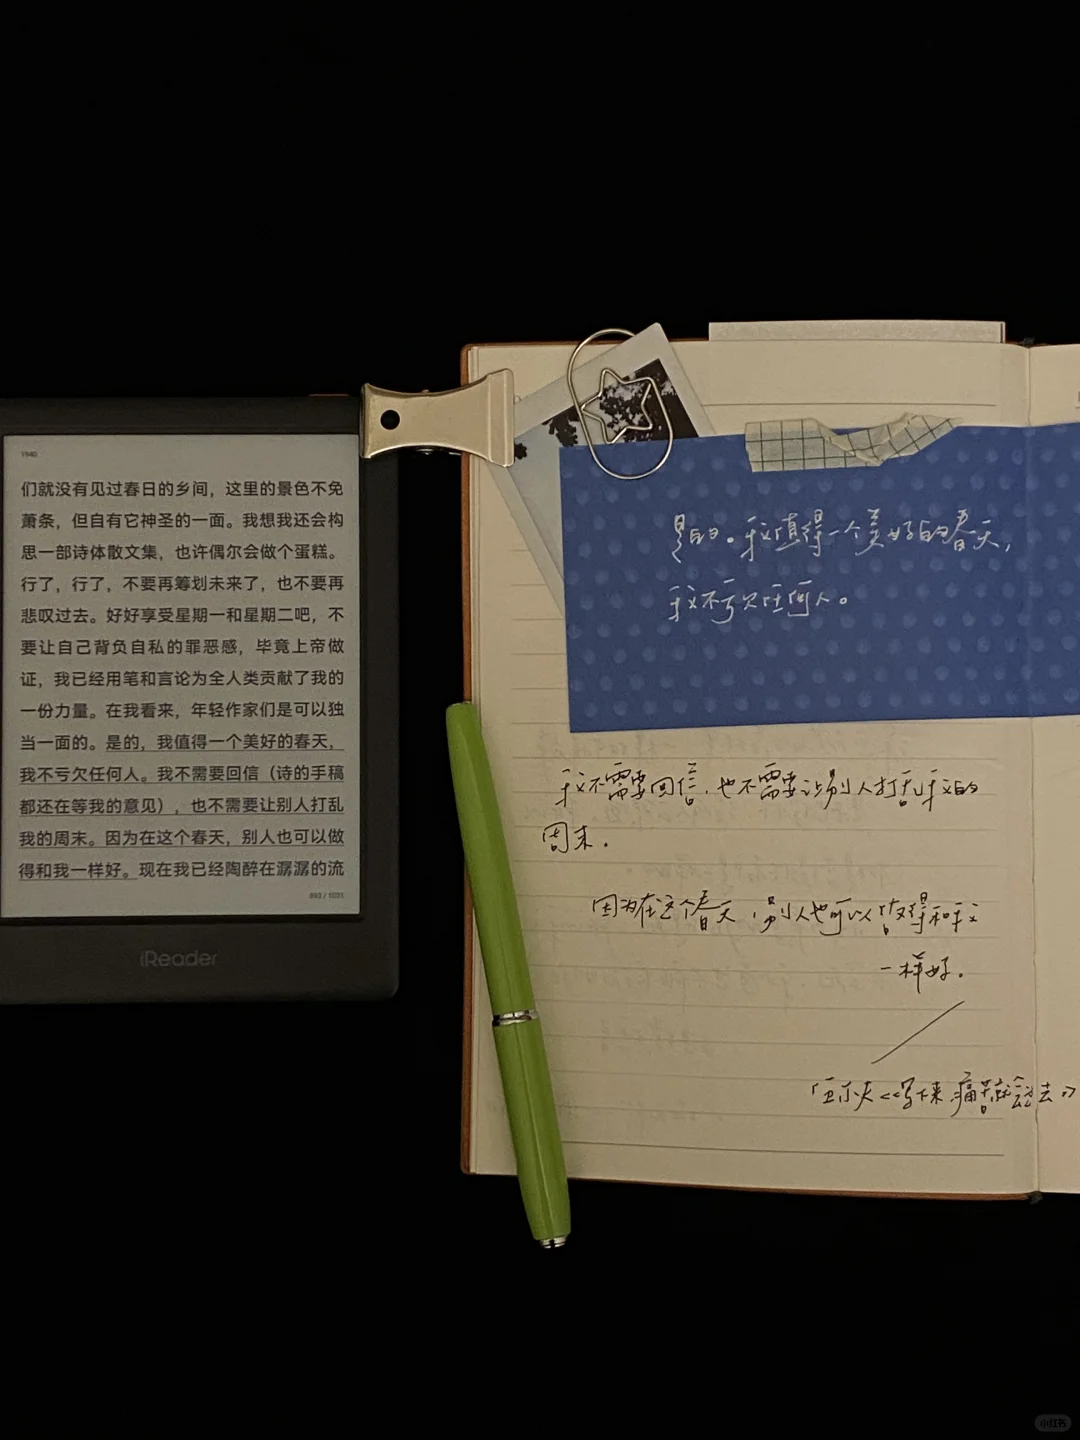 1940
们就没有见过春日的乡间，这里的景色不免
萧条，但自有它神圣的一面。我想我还会构
思一部诗体散文集，也许偶尔会做个蛋糕。
行了，行了，不要再筹划未来了，也不要再
悲叹过去。好好享受星期一和星期二吧，不
要让自己背负自私的罪恶感，毕竟上帝做
证，我已经用笔和言论为全人类贡献了我的
一份力量。在我看来，年轻作家们是可以独
当一面的。是的，我值得一个美好的春天，
我不亏欠任何人。我不需要回信（诗的手稿
都还在等我的意见），也不需要让别人打乱
我的周末。因为在这个春天，别人也可以做
得和我一样好。现在我已经陶醉在潺潺的流
893 / 1021
iReader
是的。我值得一个美好的春天，
我不亏欠任何人。
我不需要回信，也不需要让别人打乱我的
周末。
因为在这个春天，别人也可以做得和我
一样好。
「伍尔夫《写下来，痛苦就会过去》
小红书